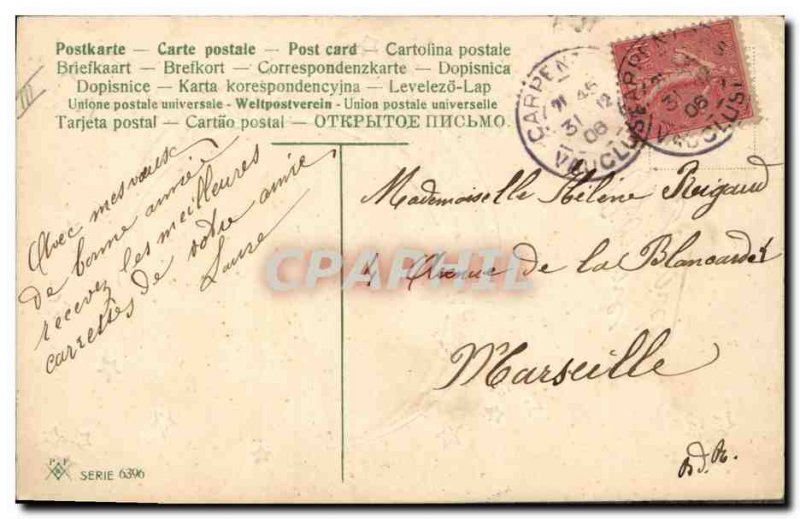 Postkarte — Carte postale — Post card — Cartolina postale
Briefkaart — Brefkort — Correspondenzkarte — Dopisnica
Dopisnice — Karta korespondencyjna — Levelező-Lap
Unione postale universale - Weltpostverein - Union postale universelle
Tarjeta postal — Cartão postal — ОТКРЫТОЕ ПИСЬМО.
III
CARPEN
21 45
31 12
06
VAUCLUSE
CARPEN
31
06
VAUCLUSE
Avec mes vœux
de bonne année
recevez les meilleures
carresses de votre amie
Laure
Mademoiselle Hélène Reigaud
4 Avenue de la Blancarde
Marseille
B.d.R.
CPAPHIL
SERIE 6396